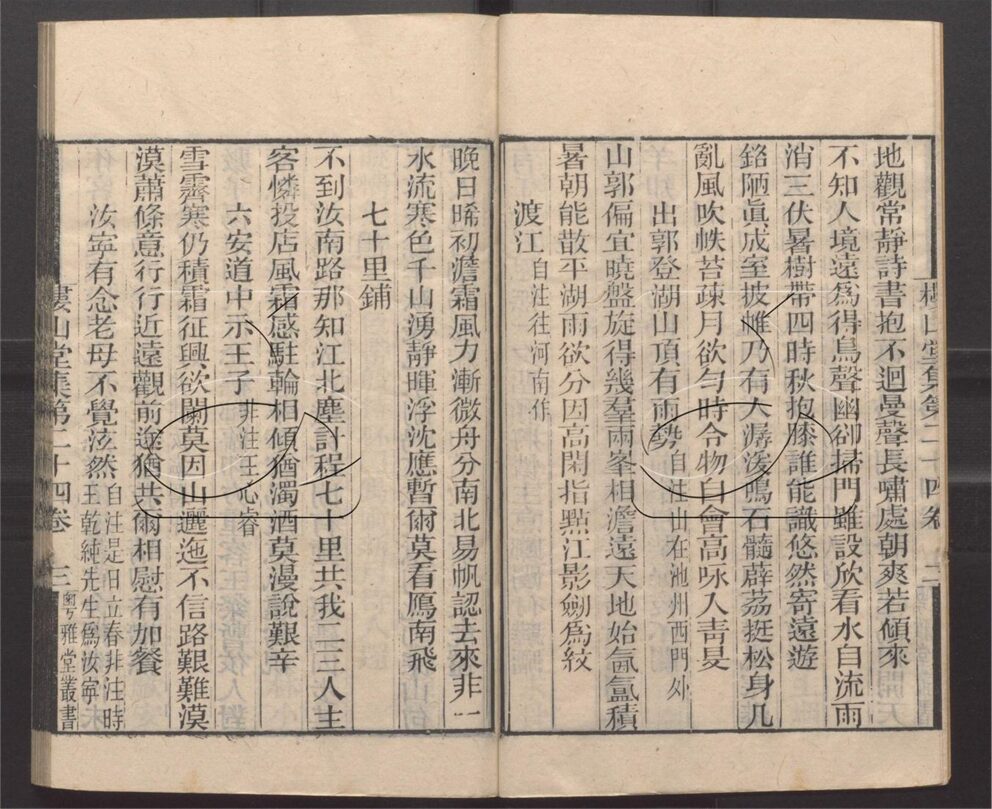 地觀常靜詩書抱不迴曼聲長嘯處朝爽若傾來
不知人境遠爲得鳥聲幽卻掃門雖設欣看水自流雨
消三伏暑樹帶四時秋抱膝誰能識悠然寄遠遊
銘陋眞成室披帷乃有人潺湲鳴石髓薜荔挺松身几
亂風吹帙苔疎月欲勻時令物白會高咏入靑旻
出郭登湖山頂有雨勢自注山在池州西門外
山郭偏宜曉盤旋得幾羣兩峯相澹遠天地始氤氳積
暑朝能散平湖雨欲分因高閑指點江影劒爲紋
渡江自注往河南作
晚日晞初澹霜風力漸微舟分南北易帆認去來非一
水流寒色千山湧靜暉浮沈應暫爾莫看鴈南飛
七十里鋪
不到汝南路那知江北塵計程七十里共我二三人主
客憐投店風霜感駐輪相傾猶濁酒莫漫說艱辛
六安道中示王子非注王心睿
雪霽寒仍積霜征興欲闌莫因山邐迤不信路艱難漠
漠蕭條意行行近遠觀前途猶共爾相慰有加餐
汝寧有念老母不覺泫然自注是日立春非注時
王乾純先生爲汝寧
樓山堂集第二十四卷 三 粵雅堂叢書